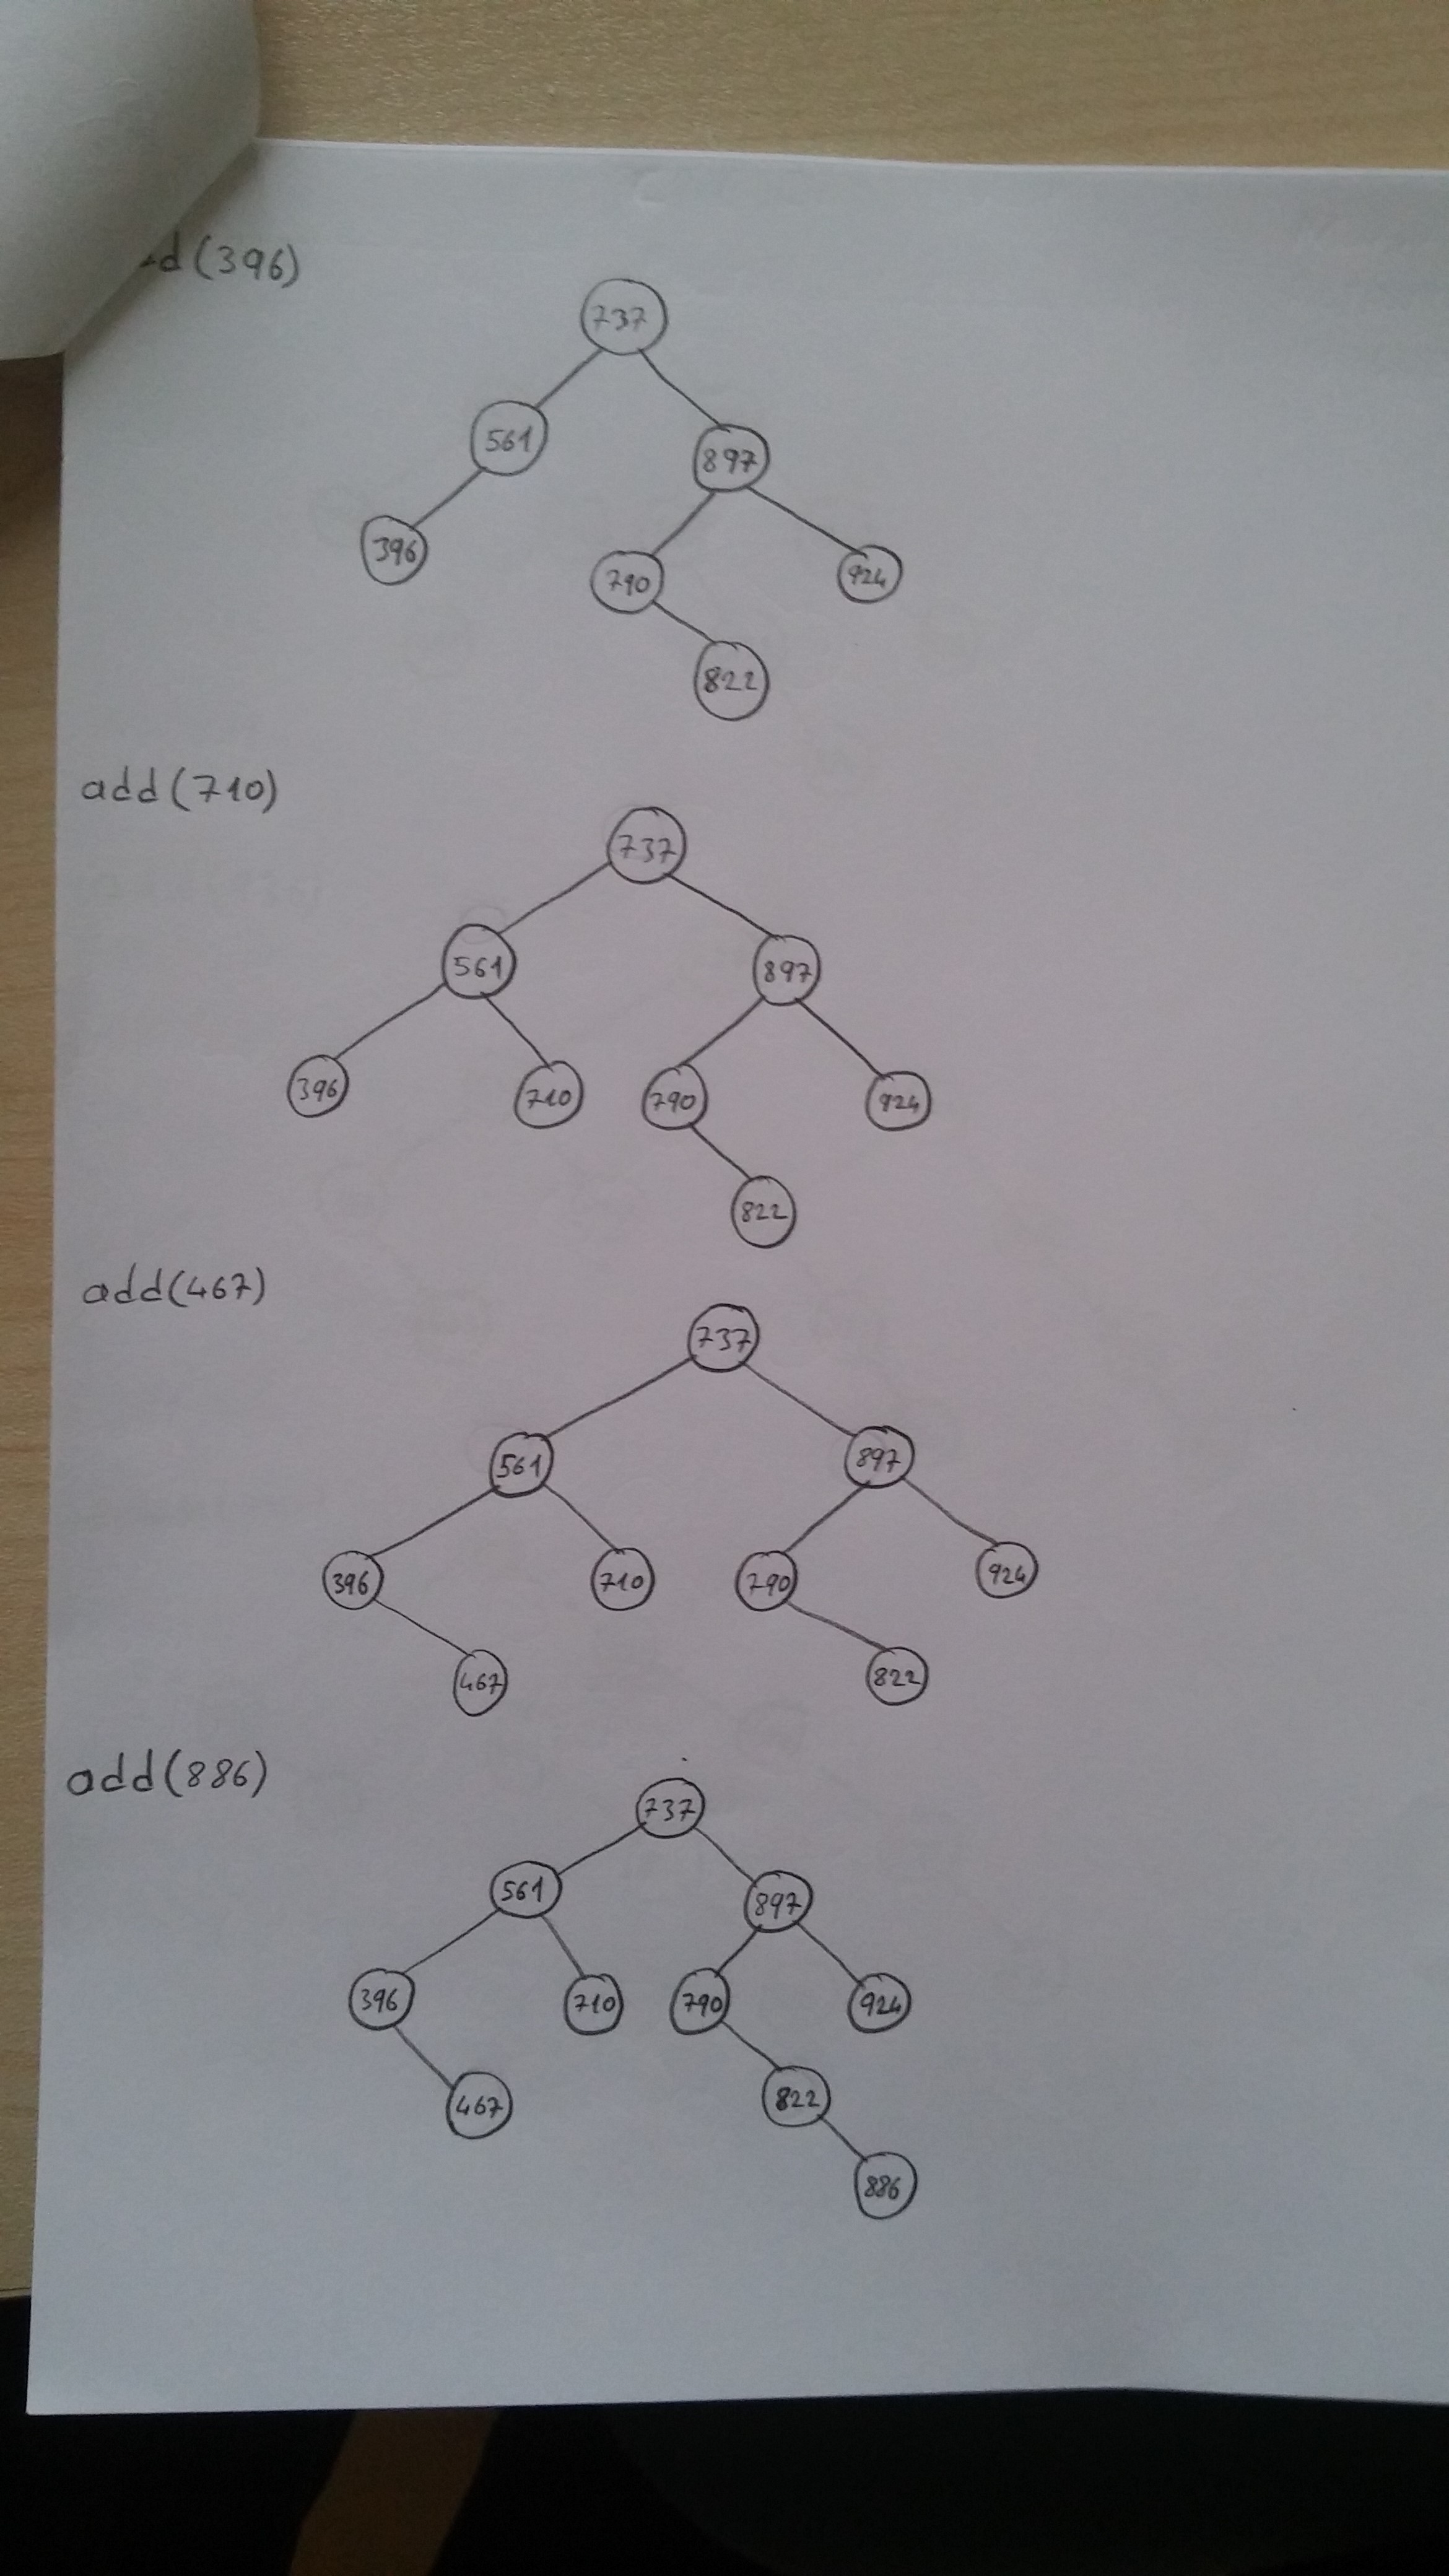 d(396)
737
561
897
396
790
924
822
add(710)
737
561
897
396
710
790
924
822
add(467)
737
561
897
396
710
790
924
467
822
add(886)
737
561
897
396
710
790
924
467
822
886